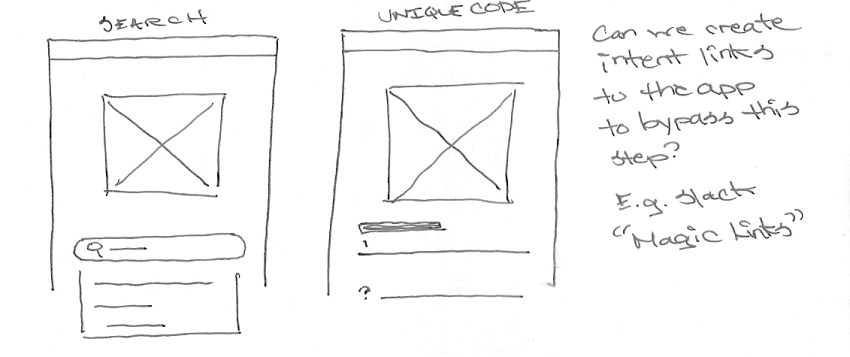 SEARCH
UNIQUE CODE
Can we create
intent links
to the app
to bypass this
step?
E.g. Slack
“Magic Links”
?